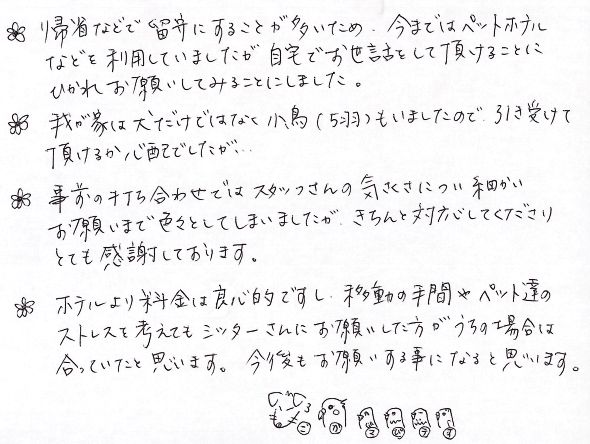 帰省などで留守にすることが多いため、今まではペットホテル
などを利用していましたが自宅でお世話をして頂けることに
ひかれお願いしてみることにしました。
我が家は犬だけではなく小鳥(5羽)もいましたので、引き受けて
頂けるか心配でしたが…
事前の打ち合わせではスタッフさんの気さくさについ細かい
お願いまで色々としてしまいましたが、きちんと対応してくださり
とても感謝しております。
ホテルより料金は良心的ですし、移動の手間やペット達の
ストレスを考えてもシッターさんにお願いした方がうちの場合は
合っていたと思います。今後もお願いする事になると思います。